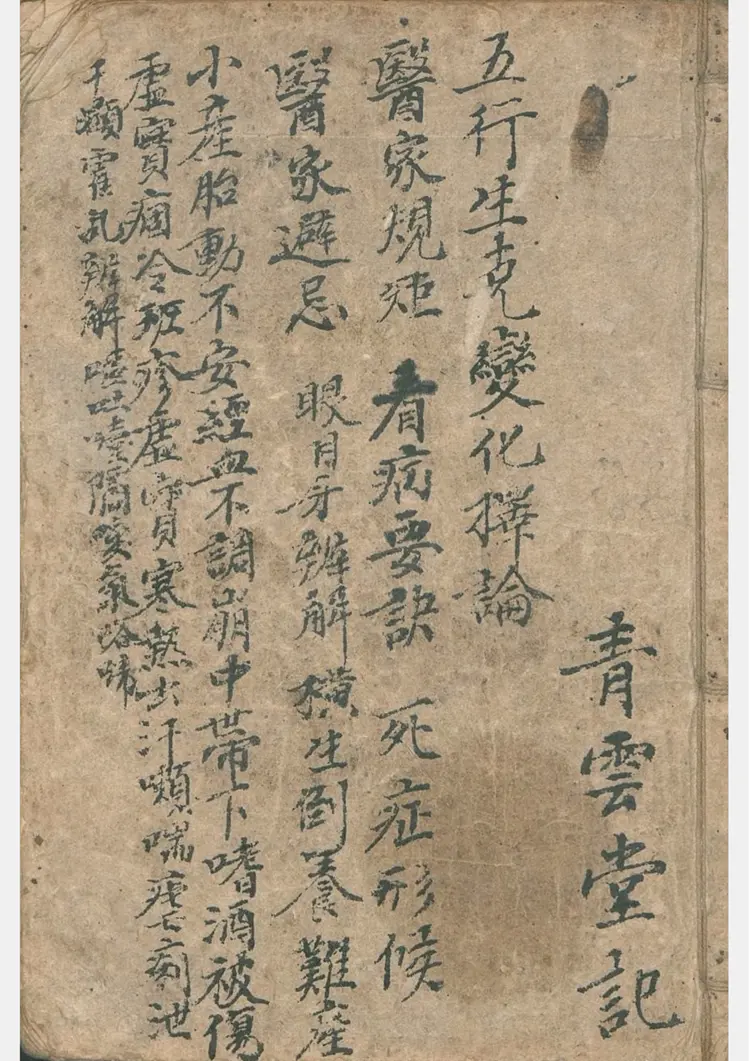 青雲堂記
五行生克變化擇論
醫家規矩 看病要訣 死症形候
醫家避忌 眼目牙辨解 橫生倒養難產
小產胎動不安經血不調崩中帶下嗜酒被傷
虛實痼冷班疹虛實寒熱出汗喘瘧痢泄
霍乱辨解吐膈氣